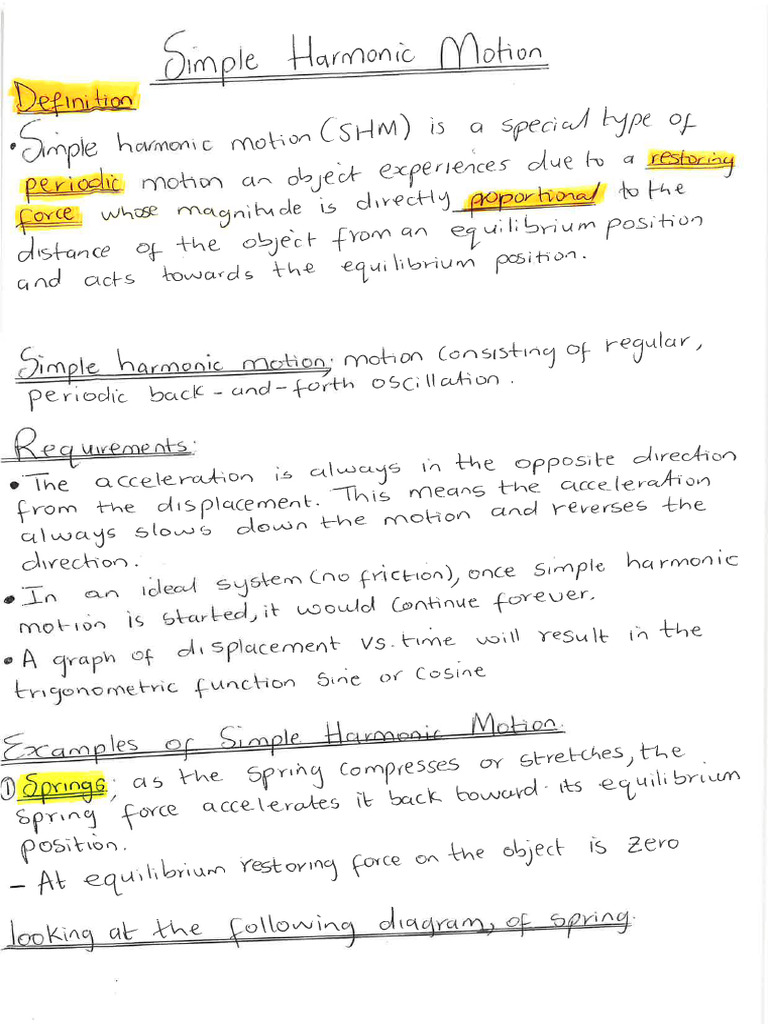 Simple Harmonic Motion
Definition
• Simple harmonic motion (SHM) is a special type of
periodic motion an object experiences due to a restoring
force whose magnitude is directly proportional to the
distance of the object from an equilibrium position
and acts towards the equilibrium position.
Simple harmonic motion; motion consisting of regular,
periodic back-and-forth oscillation.
Requirements:
• The acceleration is always in the opposite direction
from the displacement. This means the acceleration
always slows down the motion and reverses the
direction.
• In an ideal system (no friction), once simple harmonic
motion is started, it would continue forever.
• A graph of displacement vs. time will result in the
trigonometric function sine or cosine
Examples of Simple Harmonic Motion.
① Springs; as the spring compresses or stretches, the
spring force accelerates it back toward its equilibrium
position.
- At equilibrium restoring force on the object is zero
looking at the following diagram, of spring.